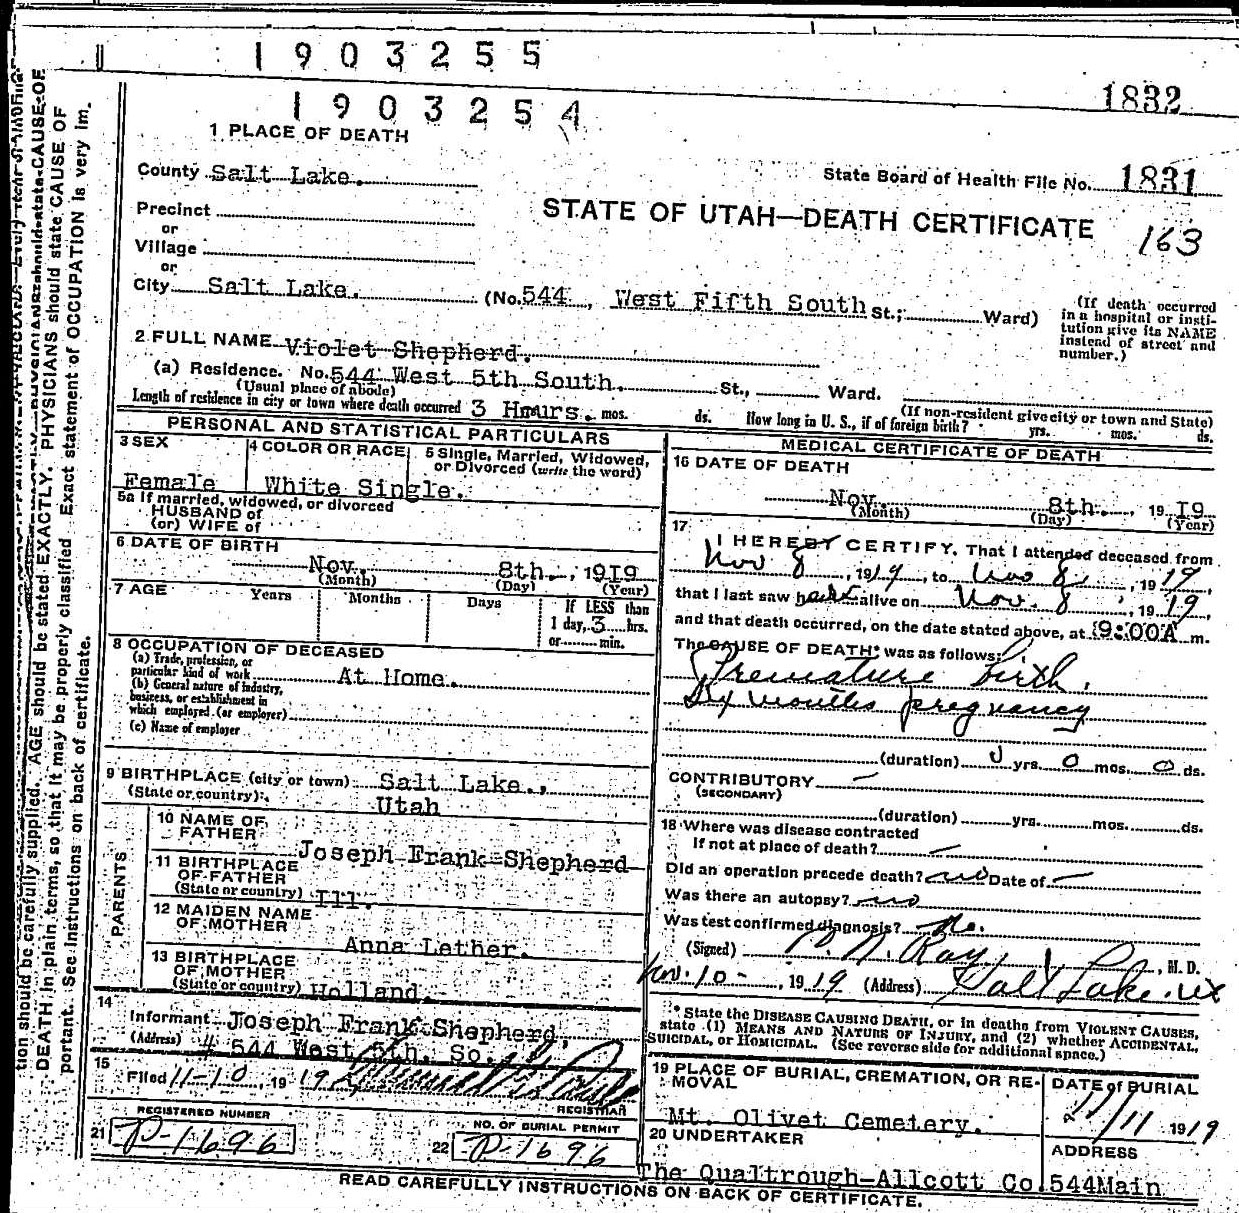 1903255
1832
1903254
1 PLACE OF DEATH
County Salt Lake.
State Board of Health File No. 1831
Precinct
STATE OF UTAH—DEATH CERTIFICATE
163
or
Village
or
City Salt Lake. (No. 544, West Fifth South St.; Ward)
(If death occurred in a hospital or insti-
tution give its NAME
instead of street and
number.)
2 FULL NAME Violet Shepherd.
(a) Residence. No. 544 West 5th South. St., Ward.
(Usual place of abode)
(If non-resident give city or town and State)
Length of residence in city or town where death occurred 3 Hours. mos. ds. How long in U. S., if of foreign birth? yrs. mos. ds.
PERSONAL AND STATISTICAL PARTICULARS
3 SEX
Female
4 COLOR OR RACE
White
5 Single, Married, Widowed,
or Divorced (write the word)
Single.
5a If married, widowed, or divorced
HUSBAND of
(or) WIFE of
6 DATE OF BIRTH
Nov. 8th., 19I9
(Month) (Day) (Year)
7 AGE Years Months Days If LESS than
1 day, 3 hrs.
or min.
8 OCCUPATION OF DECEASED
(a) Trade, profession, or
particular kind of work At Home.
(b) General nature of industry,
business, or establishment in
which employed (or employer)
(c) Name of employer
9 BIRTHPLACE (city or town) Salt Lake.,
(State or country) Utah
PARENTS
10 NAME OF
FATHER Joseph Frank Shepherd
11 BIRTHPLACE
OF FATHER
(State or country) Ill.
12 MAIDEN NAME
OF MOTHER
Anna Lether.
13 BIRTHPLACE
OF MOTHER
(State or country) Holland.
14
Informant Joseph Frank Shepherd,
(Address) # 544 West 5th. So.
15
Filed 11-10, 1919
REGISTRAR
REGISTERED NUMBER
21 P-1696
NO. OF BURIAL PERMIT
22 P-1696
MEDICAL CERTIFICATE OF DEATH
16 DATE OF DEATH
Nov. 8th., 19I9
(Month) (Day) (Year)
17
I HEREBY CERTIFY, That I attended deceased from
Nov 8, 1919, to Nov 8, 1919,
that I last saw alive on Nov. 8, 1919,
and that death occurred, on the date stated above, at 9:00A m.
The CAUSE OF DEATH* was as follows:
Premature birth,
Six months pregnancy
(duration) 0 yrs. 0 mos. 0 ds.
CONTRIBUTORY —
(SECONDARY)
(duration) yrs. mos. ds.
18 Where was disease contracted
If not at place of death? —
Did an operation precede death? no Date of —
Was there an autopsy? no
Was test confirmed diagnosis? No.
(Signed) Ray, M. D.
Nov. 10-, 1919 (Address) Salt Lake.
* State the DISEASE CAUSING DEATH, or in deaths from VIOLENT CAUSES,
state (1) MEANS AND NATURE OF INJURY, and (2) whether ACCIDENTAL,
SUICIDAL, or HOMICIDAL. (See reverse side for additional space.)
19 PLACE OF BURIAL, CREMATION, OR RE-
MOVAL
Mt. Olivet Cemetery.
DATE of BURIAL
11/11 1919
20 UNDERTAKER
The Qualtrough-Allcott Co.
ADDRESS
544Main
READ CAREFULLY INSTRUCTIONS ON BACK OF CERTIFICATE.
tion should be carefully supplied. AGE should be stated EXACTLY. PHYSICIANS should state CAUSE OF
DEATH in plain terms, so that it may be properly classified. Exact statement of OCCUPATION is very im-
portant. See instructions on back of certificate.